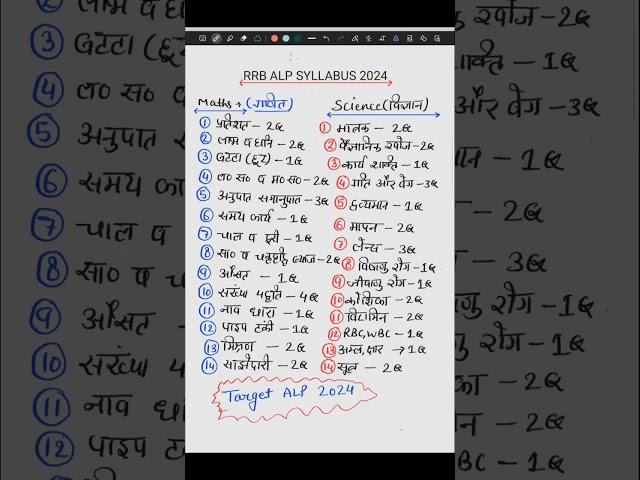 RRB ALP SYLLABUS 2024
Maths → (गणित)
① प्रतिशत – 2Q
② लाभ व हानि – 2Q
③ बट्टा (छूट) – 1Q
④ ल० स० व म० स० – 2Q
⑤ अनुपात समानुपात – 3Q
⑥ समय कार्य – 1Q
⑦ चाल व दूरी – 1Q
⑧ सा० व चक्रवृद्धि ब्याज – 2Q
⑨ औसत – 1Q
⑩ संख्या पद्धति – 4Q
⑪ नाव धारा – 1Q
⑫ पाइप टंकी – 1Q
⑬ मिश्रण – 2Q
⑭ साझेदारी – 2Q
Science (विज्ञान)
① मात्रक – 2Q
② वैज्ञानिक खोज – 2Q
③ कार्य शक्ति – 1Q
④ गति और वेग – 3Q
⑤ द्रव्यमान – 1Q
⑥ मापन – 2Q
⑦ लेन्स – 3Q
⑧ विषाणु रोग – 1Q
⑨ जीवाणु रोग – 1Q
⑩ कोशिका – 2Q
⑪ विटामिन – 2Q
⑫ RBC, WBC – 1Q
⑬ अम्ल, क्षार → 1Q
⑭ सूत्र – 2Q
Target ALP 2024